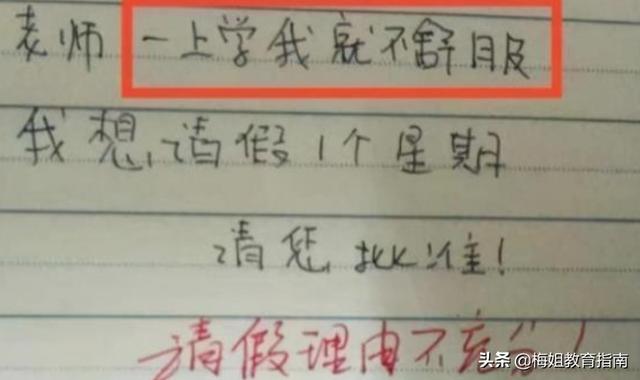 老师一上学我就不舒服
我想请假1个星期
请您批准!
请假理由不充分!
头条@梅姐教育指南